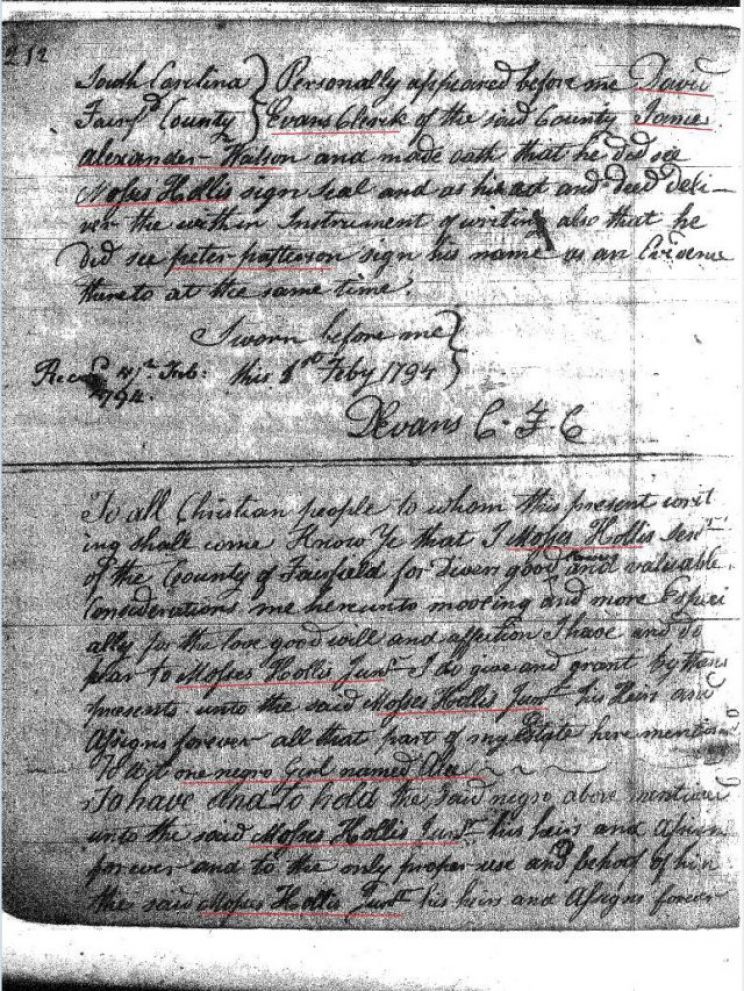 212
South Carolina } Personally appeared before me David
Fairfd County } Evans Clerk of the said County James
alexander Watson and made oath that he did see
Moses Hollis sign seal and as his act and deed deli-
ver the within Instrument of writing also that he
did see peter patterson sign his name as an Evidence
thereto at the same time.
Sworn before me }
this 1st Feby 1794 }
Recd Feb:
1794.
DEvans C. F. C
To all Christian people to whom this present writ
ing shall come Know Ye that I Moses Hollis Senr
of the County of Fairfield for Divers good and valuable
Considerations me hereunto mooving and more Especi
ally for the love good will and affection I have and do
bear to Moses Hollis Junr I do give and grant by these
presents unto the said Moses Hollis Junr his Heirs and
Assigns forever all that part of my Estate here mention
To Wit one negro Girl named
To have and to hold the said negro above mention
unto the said Moses Hollis Junr his heirs and Assigns
forever and to the only proper use and behoof of him
the said Moses Hollis Junr his heirs and Assigns forever